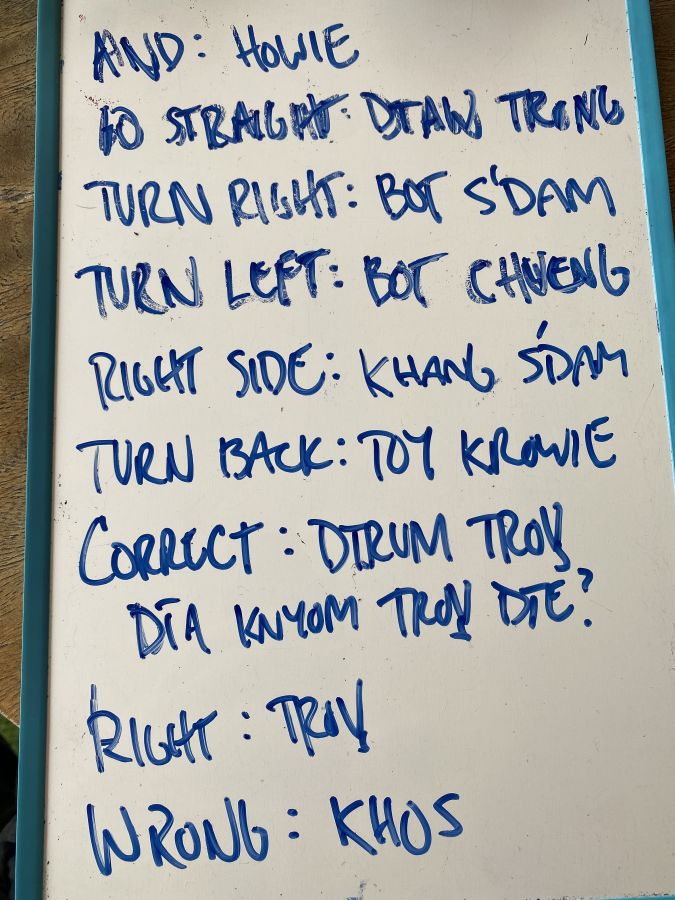 AND: HOWIE
GO STRAIGHT: DTAW TRONG
TURN RIGHT: BOT S'DAM
TURN LEFT: BOT CHWENG
RIGHT SIDE: KHANG S'DAM
TURN BACK: TOY KROWIE
CORRECT: DTRUM TROV
DTA KNYOM TROV DTE?
RIGHT: TROV
WRONG: KHOS